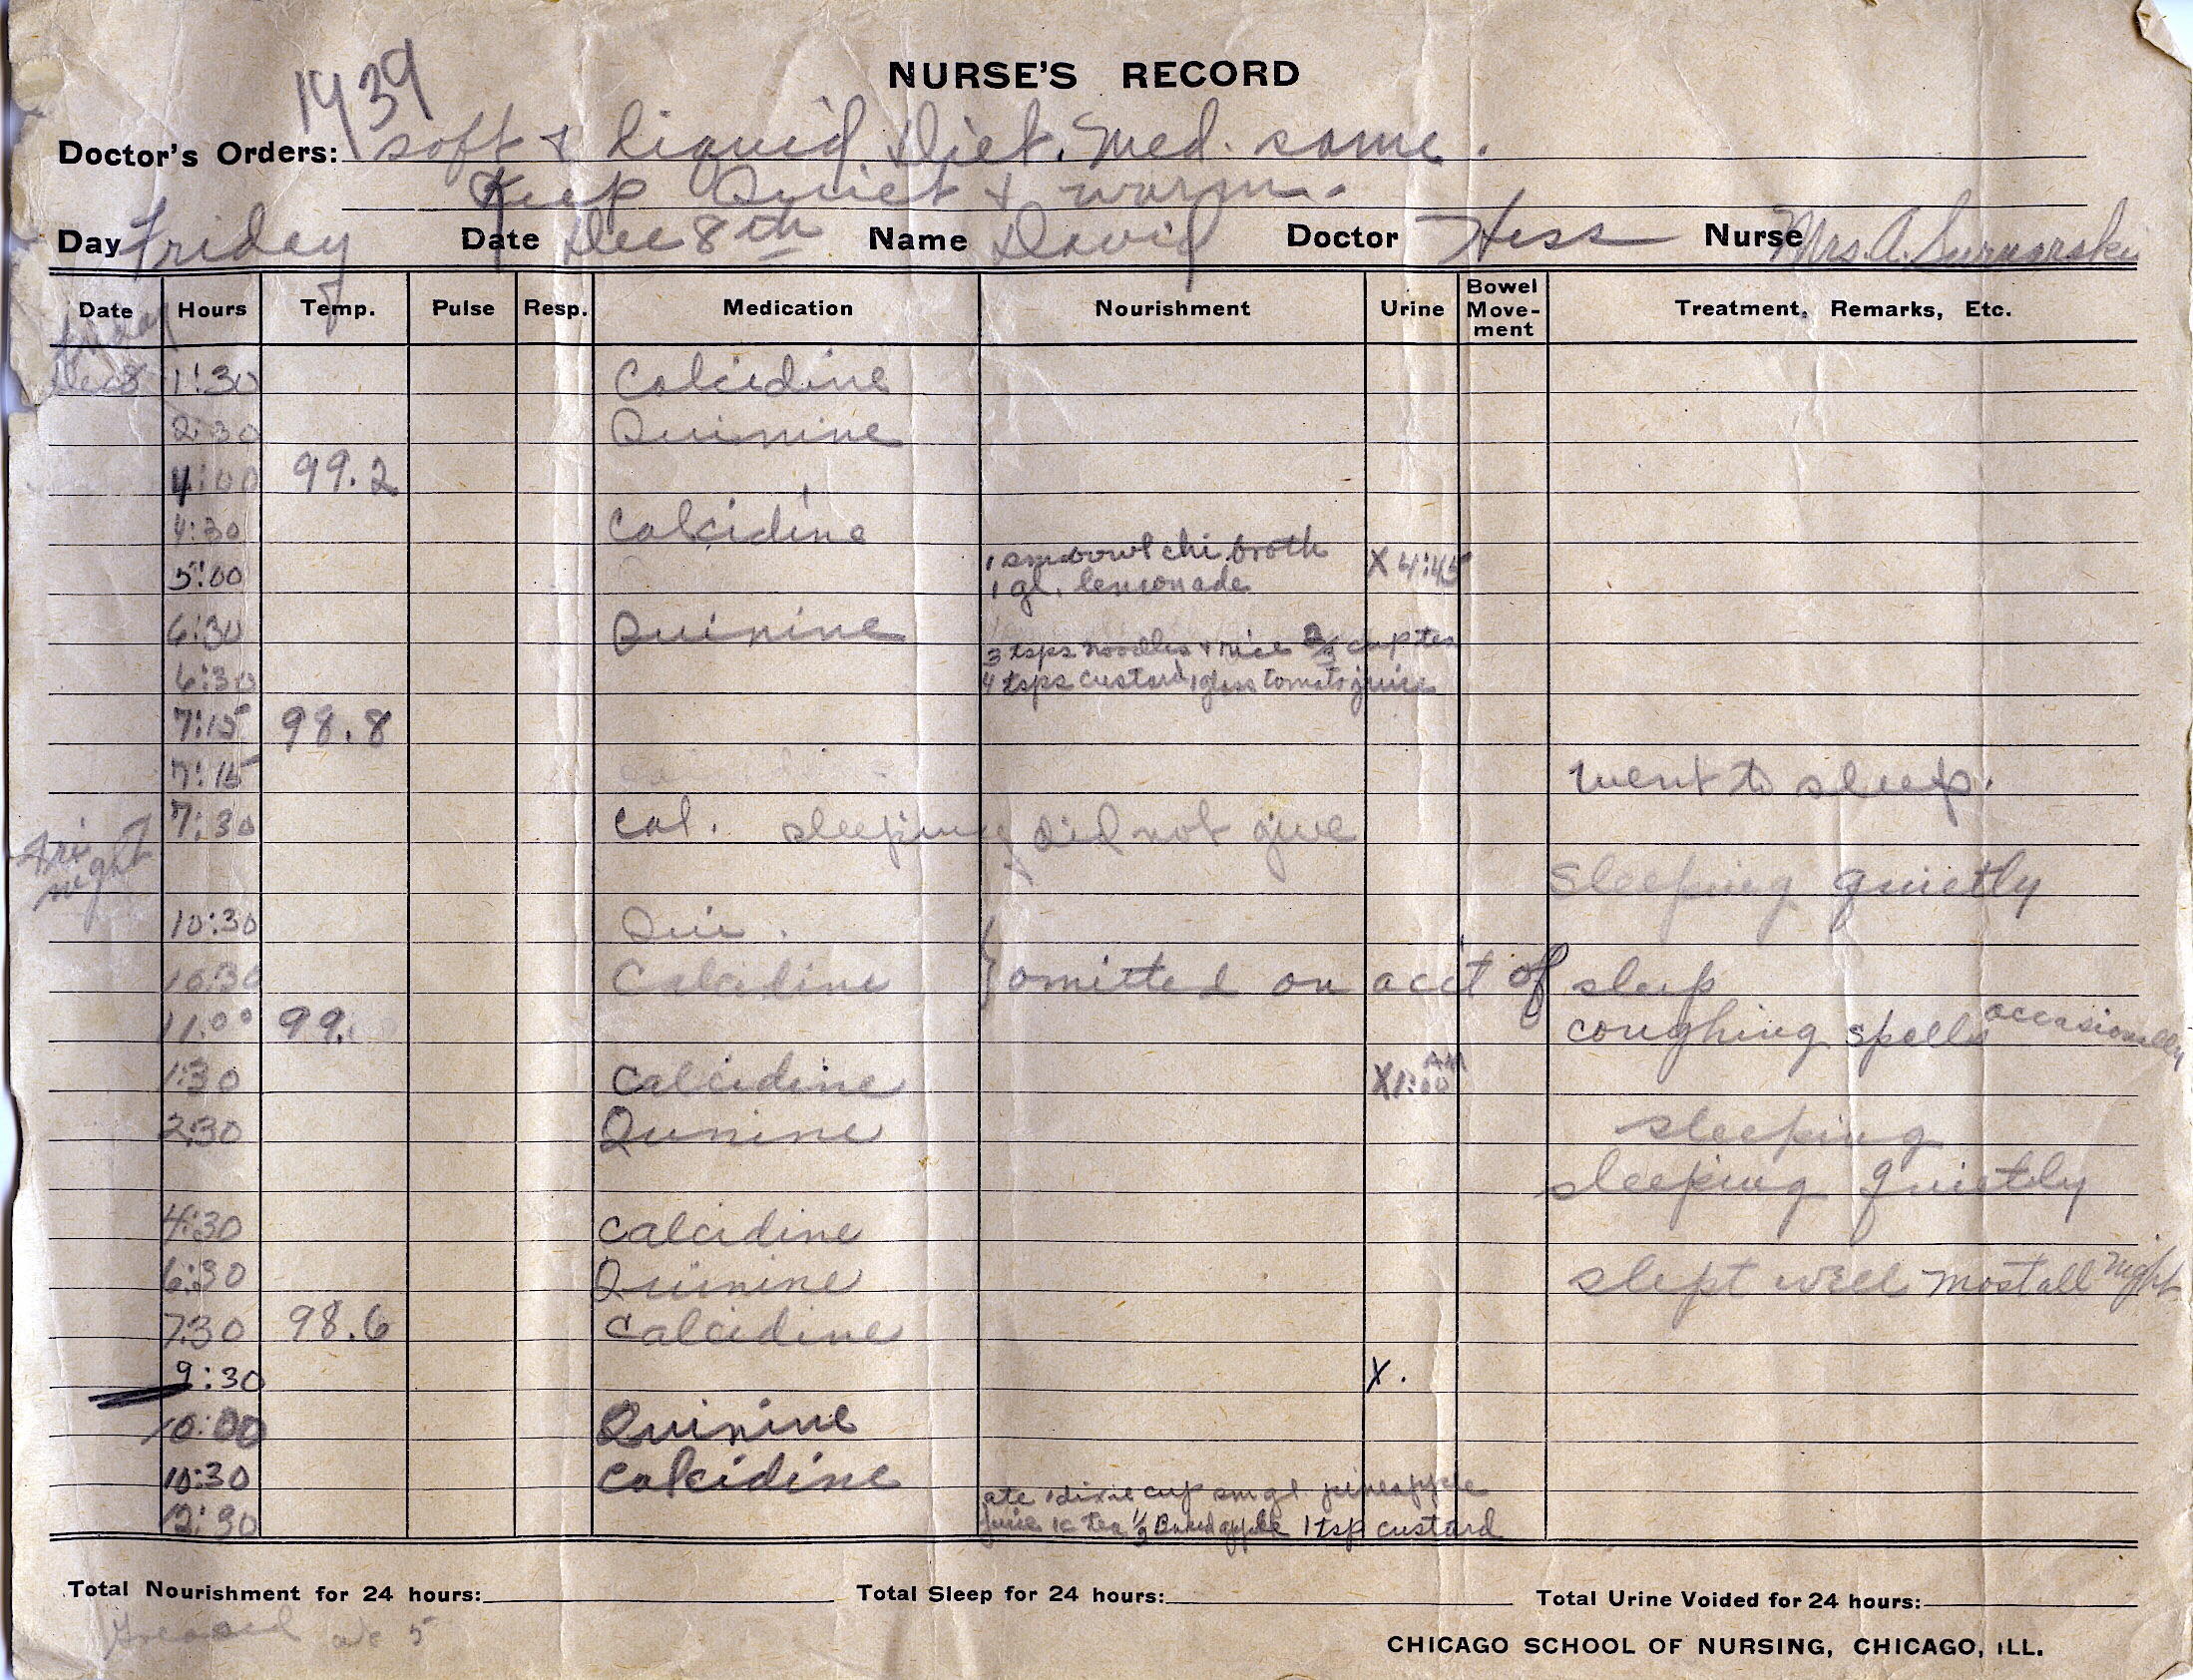 NURSE'S RECORD
1939
Doctor's Orders: soft & liquid Diet. Med. same.
Keep Quiet & warm.
Day Friday Date Dec 8th Name David Doctor Hess Nurse Mrs. A.
Date Hours Temp. Pulse Resp. Medication Nourishment Urine Bowel Move-ment Treatment, Remarks, Etc.
Friday
Dec 8 1:30 Calcidine
2:30 Quinine
4:00 99.2
4:30 Calcidine
5:00 1 sm bowl chi broth X 4:45
1 gl. lemonade
6:30 Quinine
3 tsps noodles & rice 2/3 cup tea
6:30 4 tsps custard 1 glass tomato juice
7:15 98.8
7:15 went to sleep.
7:30 Cal. sleeping did not give
Fri night
sleeping quietly
10:30 Qui.
10:30 Calcidine } omitted on acct of sleep
11:00 99. coughing spells occasionally
1:30 Calcidine X 1:00 AM
2:30 Qunine sleeping
sleeping quietly
4:30 Calcidine
6:30 Quinine slept well most all night
7:30 98.6 Calcidine
9:30 X.
10:00 Quinine
10:30 Calcidine
ate 1 dixie cup sm gl pineapple
2:30 juice 1c tea 1/2 Baked apple 1 tsp custard
Total Nourishment for 24 hours: Total Sleep for 24 hours: Total Urine Voided for 24 hours:
5
CHICAGO SCHOOL OF NURSING, CHICAGO, ILL.